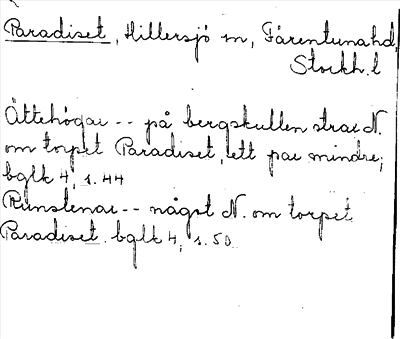 Paradiset, Hillersjö sn, Färentuna hd,
Stockh. l
Ättehögar -- på bergskullen strax N.
om torpet Paradiset, ett par mindre;
bglk 4, s. 44
Runstenar -- något N. om torpet
Paradiset. bglk 4, s. 50